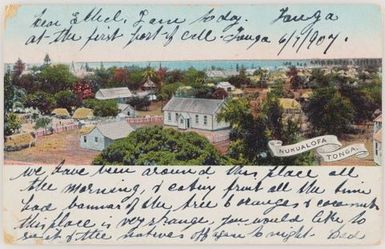 Dear Ethel. I am to day. Tonga
at the first port of call. Tonga 6/7/1907
NUKUALOFA
TONGA.
We have been around this place all
the morning, & eating fruit all the time
had bananas off the tree & oranges & coconuts
this place is very strange, you would like to
some of the natives off again to night